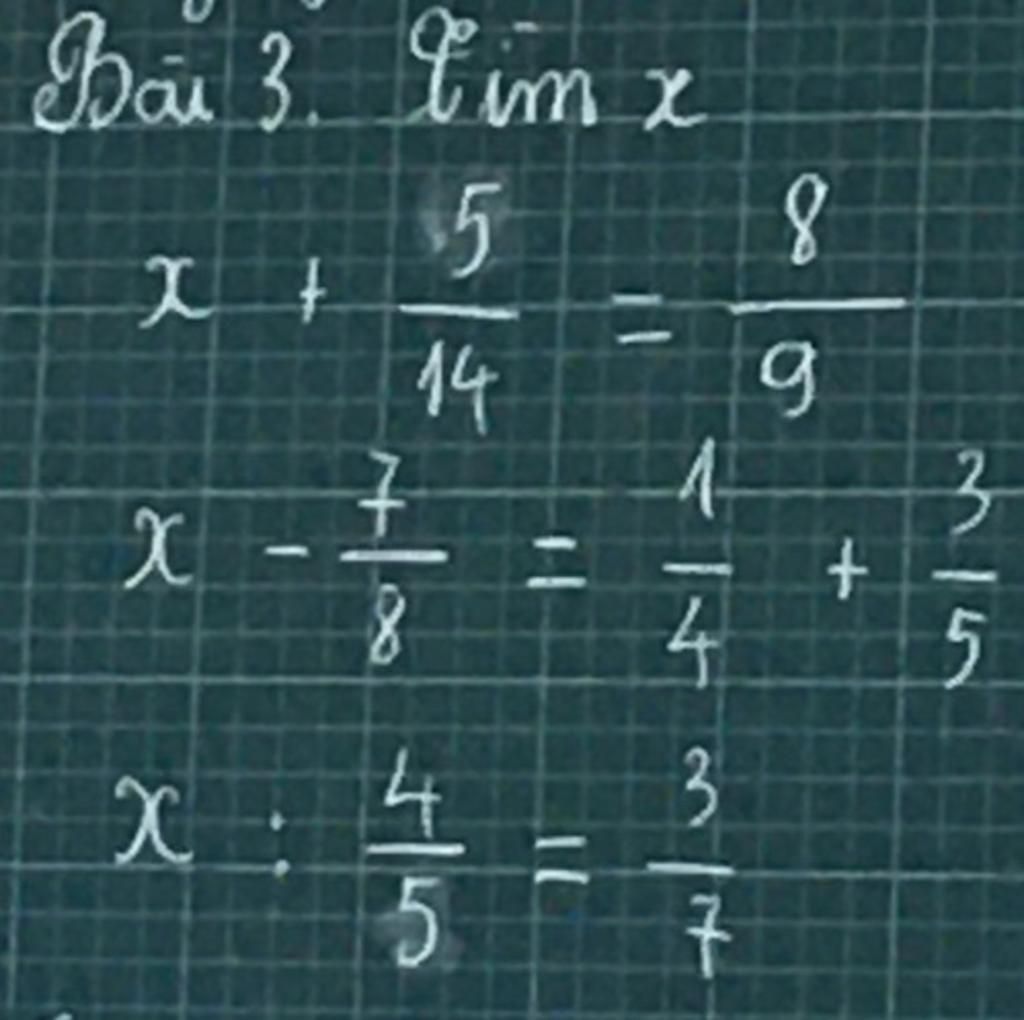 Bài 3. Tìm x
x + 5/14 = 8/9
x - 7/8 = 1/4 + 3/5
x : 4/5 = 3/7